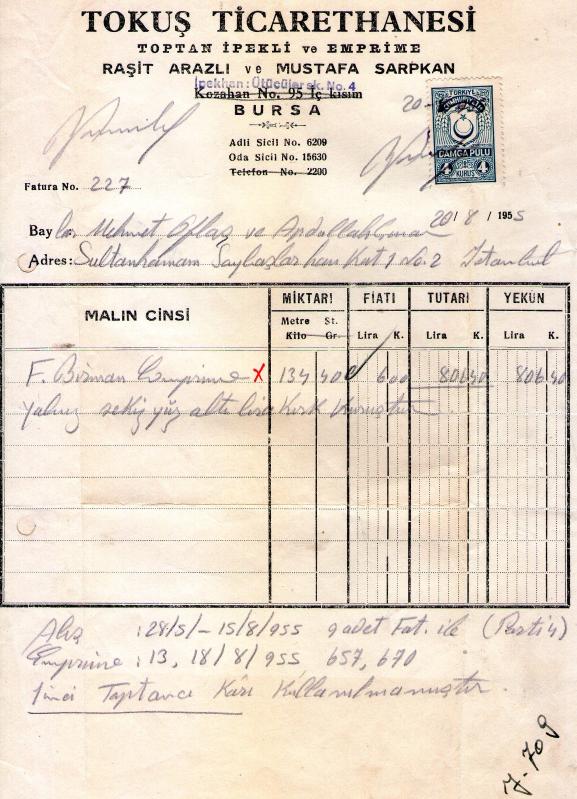 TOKUŞ TİCARETHANESİ
TOPTAN İPEKLİ ve EMPRİME
RAŞİT ARAZLI ve MUSTAFA SARPKAN
İpekhan: Ütücüler sk. No. 4
Kozahan No. 95 İç kısım
BURSA
Adli Sicil No. 6209
Oda Sicil No. 15630
Telefon No. 2200
TÜRKİYE
DAMGA PULU
4 KURUŞ 4
Fatura No. 227
20/8/1955
Bay lar Mehmet ve
Adres: Sultanhamam han Kat 1 No. 2 İstanbul
MALIN CİNSİ MİKTARI FİATI TUTARI YEKÜN
Metre St. Kilo Gr. Lira K. Lira K. Lira K.
F. Birman Emprime X 134 40 6 00 806 40 806 40
Yalnız sekiz yüz altı lira Kırk Kuruştur
Alış : 28/5/-15/8/955 9 adet Fat. ile (Parti 4)
Emprime : 13, 18/8/955 657, 670
1inci Toptancı Kârı Kullanılmamıştır.
7-709